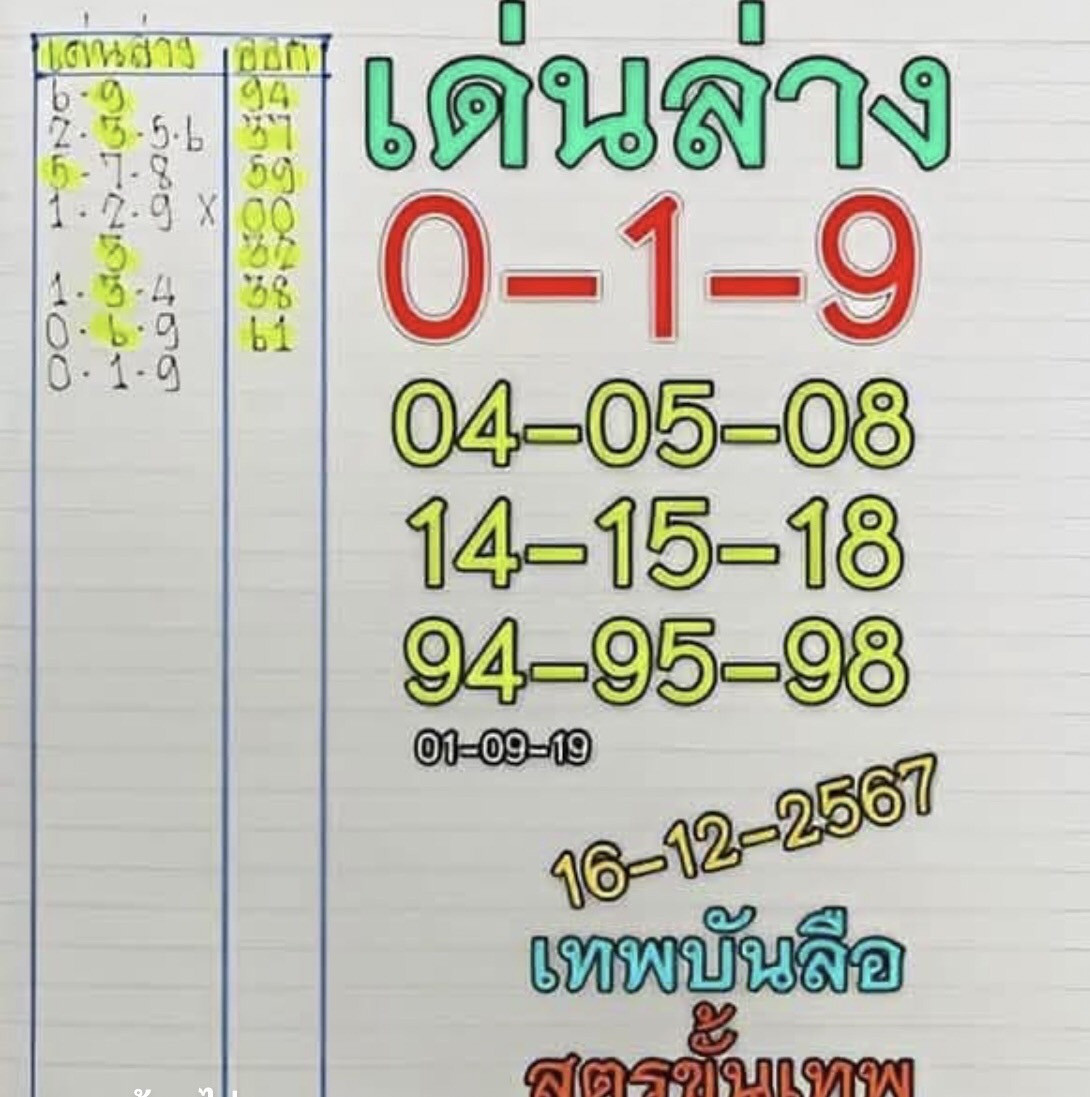 เด่นล่าง ออก
6-9 94
2-3-5-6 37
5-7-8 59
1-2-9 X 00
3 32
1-3-4 38
0-6-9 61
0-1-9
เด่นล่าง
0-1-9
04-05-08
14-15-18
94-95-98
01-09-19
16-12-2567
เทพบันลือ
สูตรขั้นเทพ